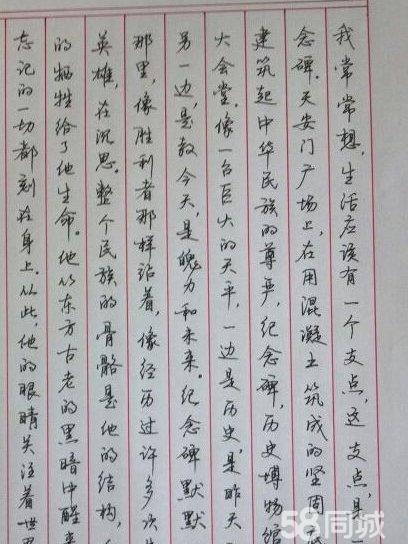 我常常想,生活应该有一个支点,这支点,是一
念碑.天安门广场上,在用混凝土筑成的坚固底
建筑起中华民族的尊严,纪念碑,历史博物馆
大会堂.像一台巨大的天平,一边是历史,是昨天
另一边,是教今天,是魄力和未来。纪念碑默默
那里,像胜利者那样站着,像经历过许多次失
英雄,在沉思。整个民族的骨骼是他的结构,
的牺牲给了他生命。他从东方古老的黑暗中醒来
忘记的一切都刻在身上.从此,他的眼睛关注着世界
58同城